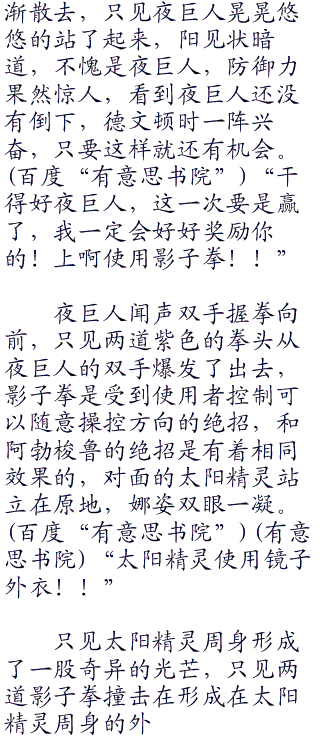 渐散去，只见夜巨人晃晃悠
悠的站了起来，阳见状暗
道，不愧是夜巨人，防御力
果然惊人，看到夜巨人还没
有倒下，德文顿时一阵兴
奋，只要这样就还有机会。
(百度“有意思书院”)“干
得好夜巨人，这一次要是赢
了，我一定会好好奖励你
的！上啊使用影子拳！！”
夜巨人闻声双手握拳向
前，只见两道紫色的拳头从
夜巨人的双手爆发了出去，
影子拳是受到使用者控制可
以随意操控方向的绝招，和
阿勃梭鲁的绝招是有着相同
效果的，对面的太阳精灵站
立在原地，娜姿双眼一凝。
(百度“有意思书院”)(有意
思书院)“太阳精灵使用镜子
外衣！！”
只见太阳精灵周身形成
了一股奇异的光芒，只见两
道影子拳撞击在形成在太阳
精灵周身的外